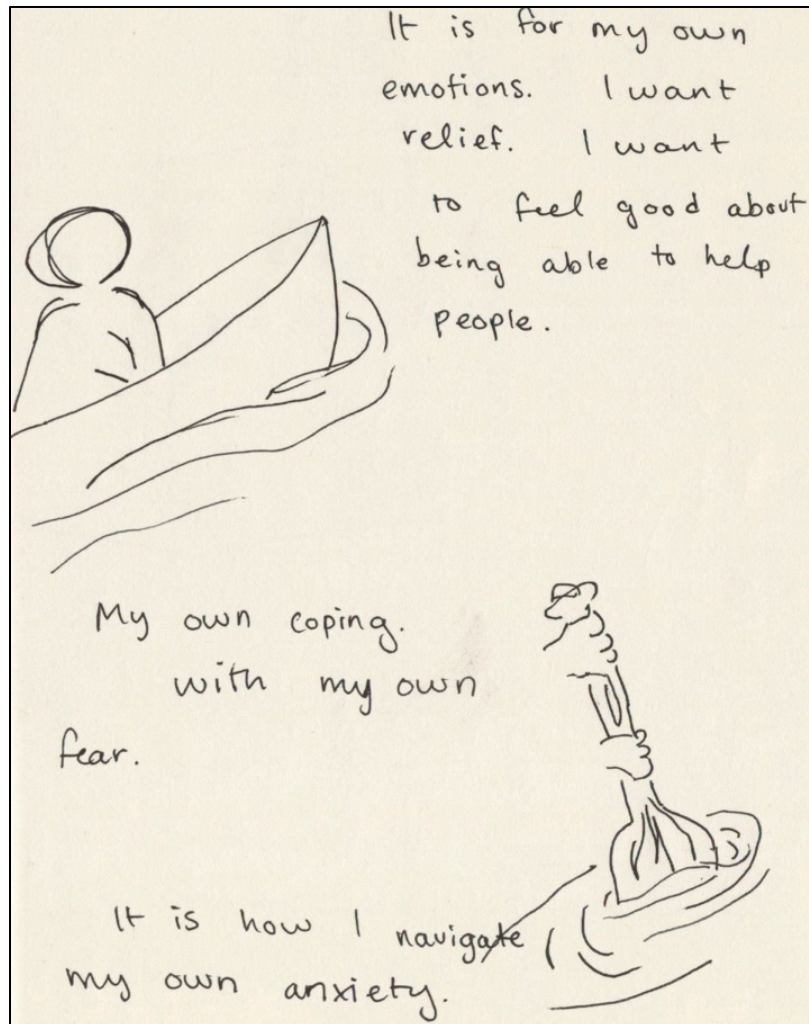 It is for my own
emotions. I want
relief. I want
to feel good about
being able to help
people.
My own coping.
with my own
fear.
It is how I navigate
my own anxiety.